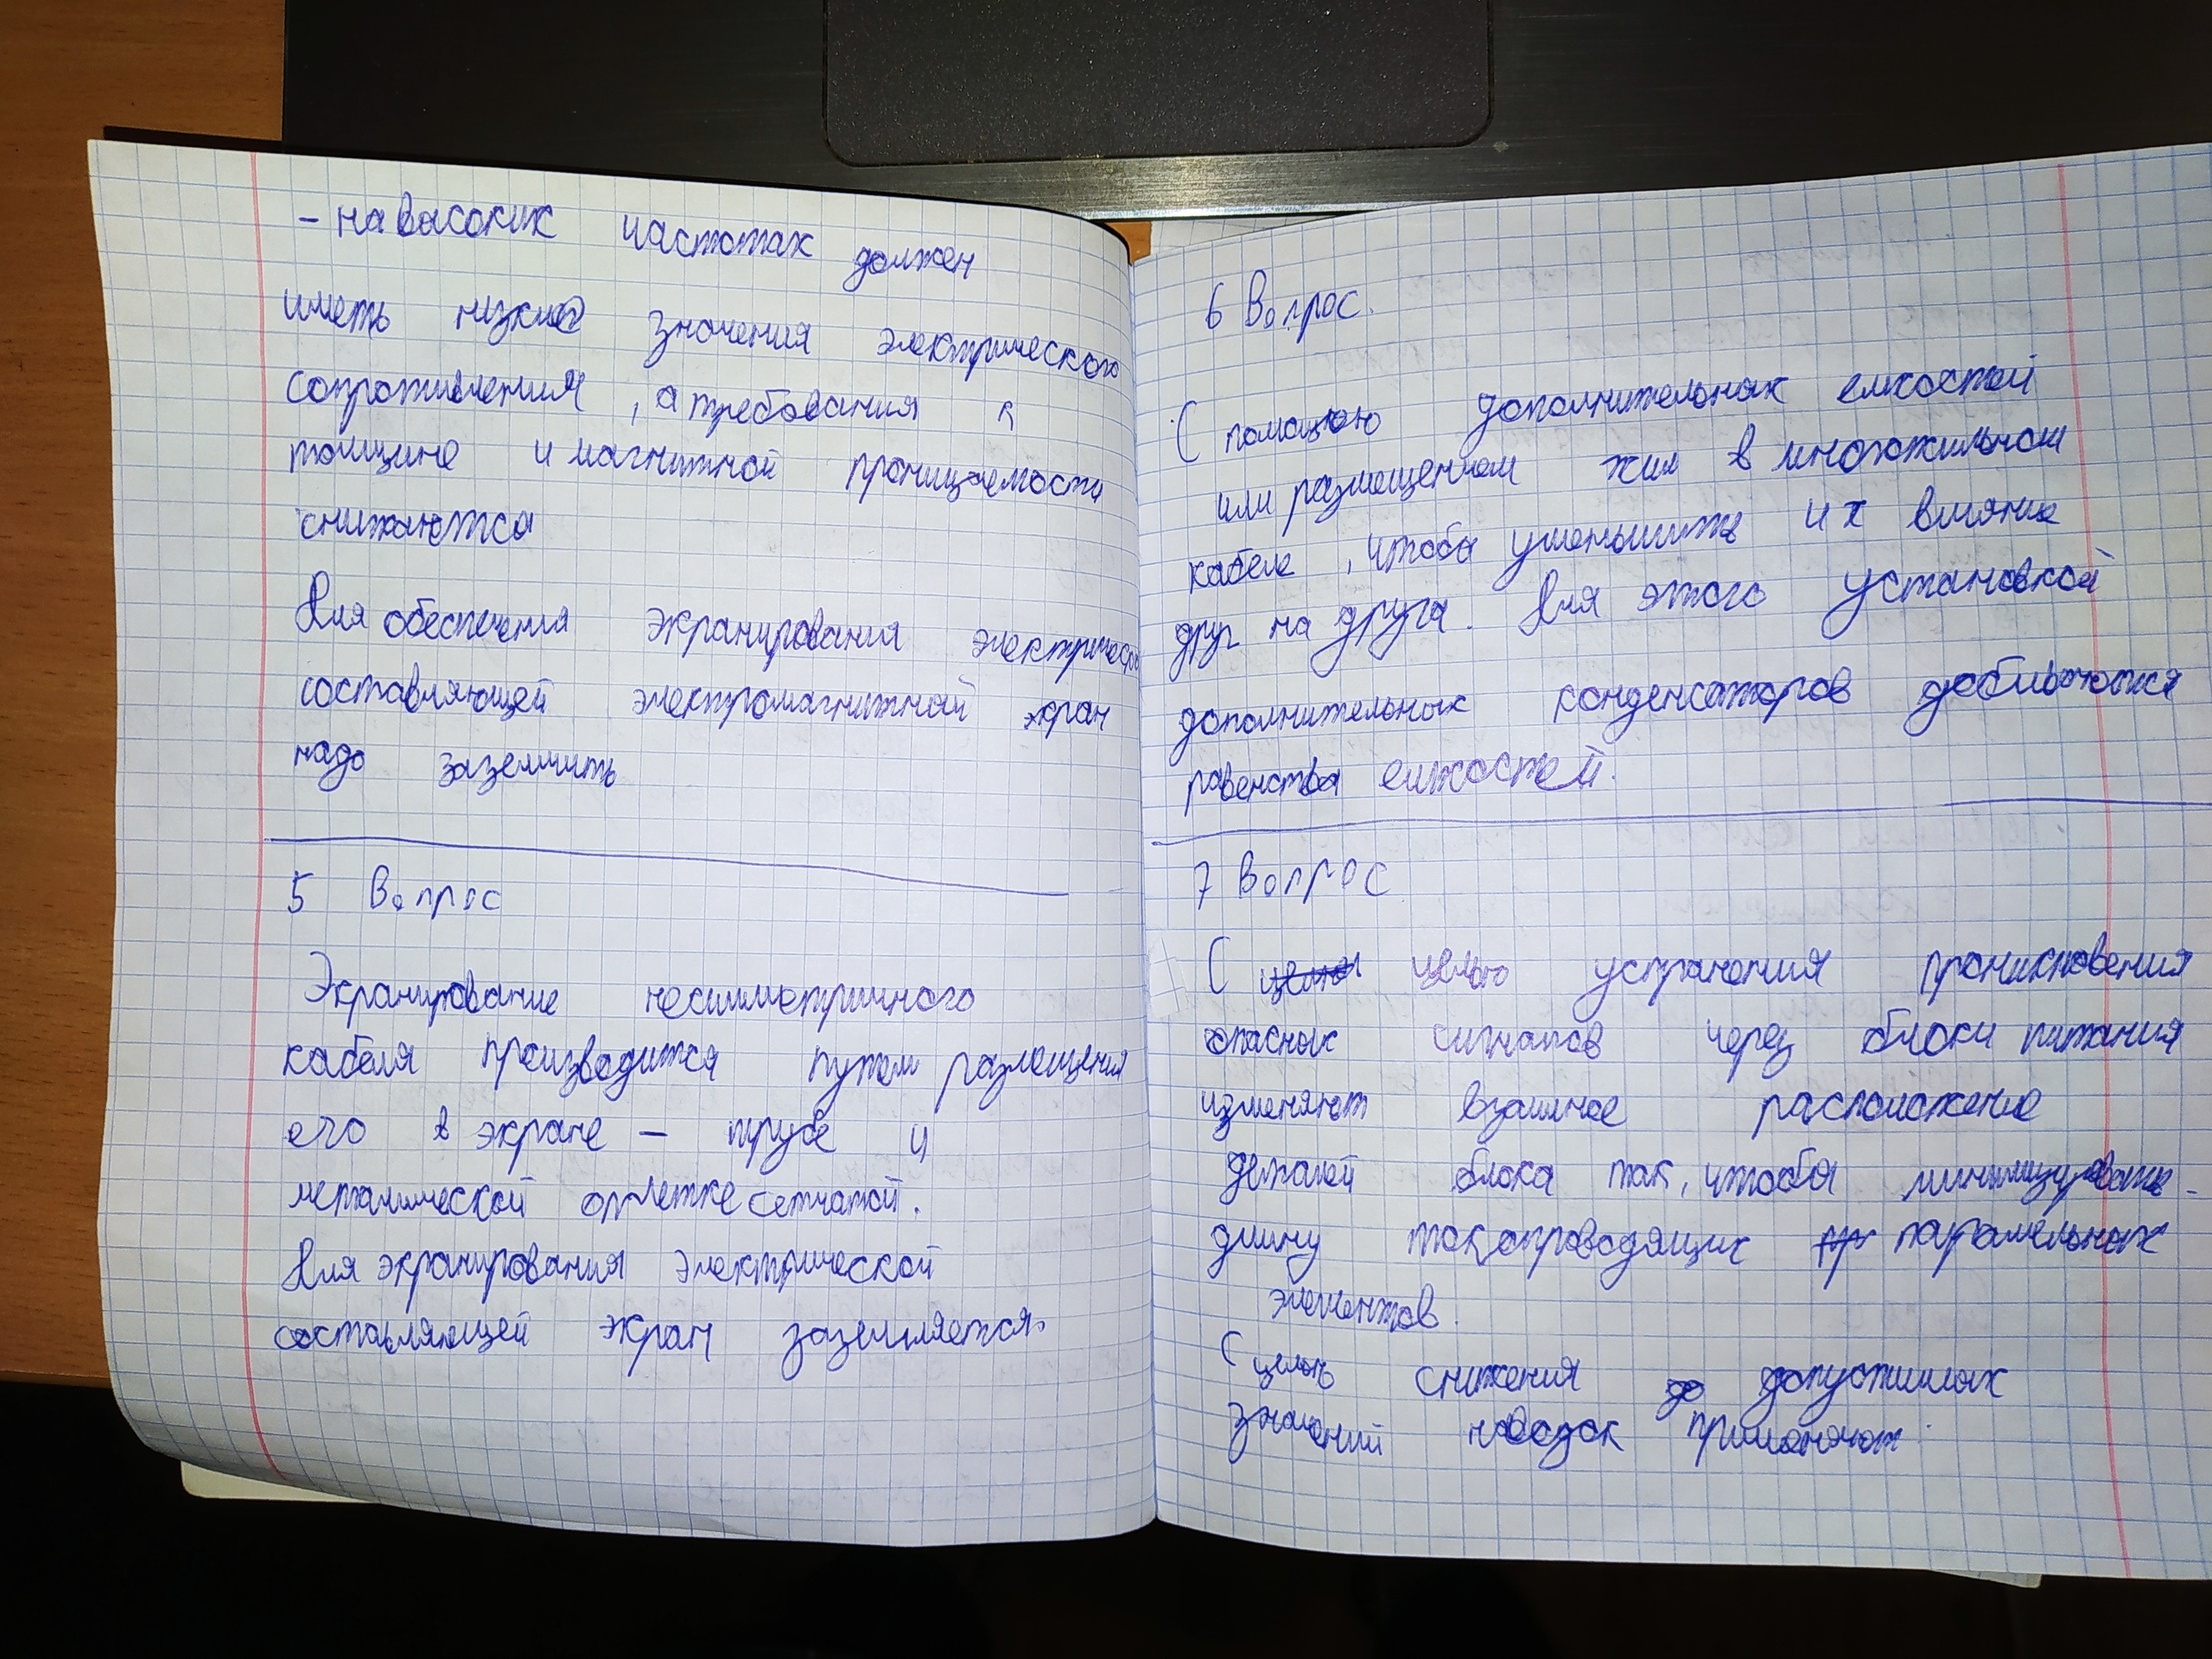 – на высоких частотах должен
иметь низкие значения электрического
сопротивления, а требования к
толщине и магнитной проницаемости
снижаются
Для обеспечения экранирования
составляющей электромагнитный экран
надо заземлить
5 Вопрос
Экранирование несимметричного
кабеля производится путем размещения
его в экране – трубе и
металической оплетке сетчатой.
Для экранирования электрической
составляющей экран заземляется.
6 Вопрос.
С помощью дополнительных емкостей
или размещением жил в многожильном
кабеле, чтобы уменьшить их влияние
друг на друга. Для этого установкой
дополнительных конденсаторов добиваются
равенства емкостей.
7 Вопрос
С целью устранения проникновения
опасных сигналов через блоки питания
изменяют взаимное расположение
деталей блока так, чтобы минимизировать
длину токопроводящих паралельных
элементов.
С целью снижения до допустимых
значений наводок применяют